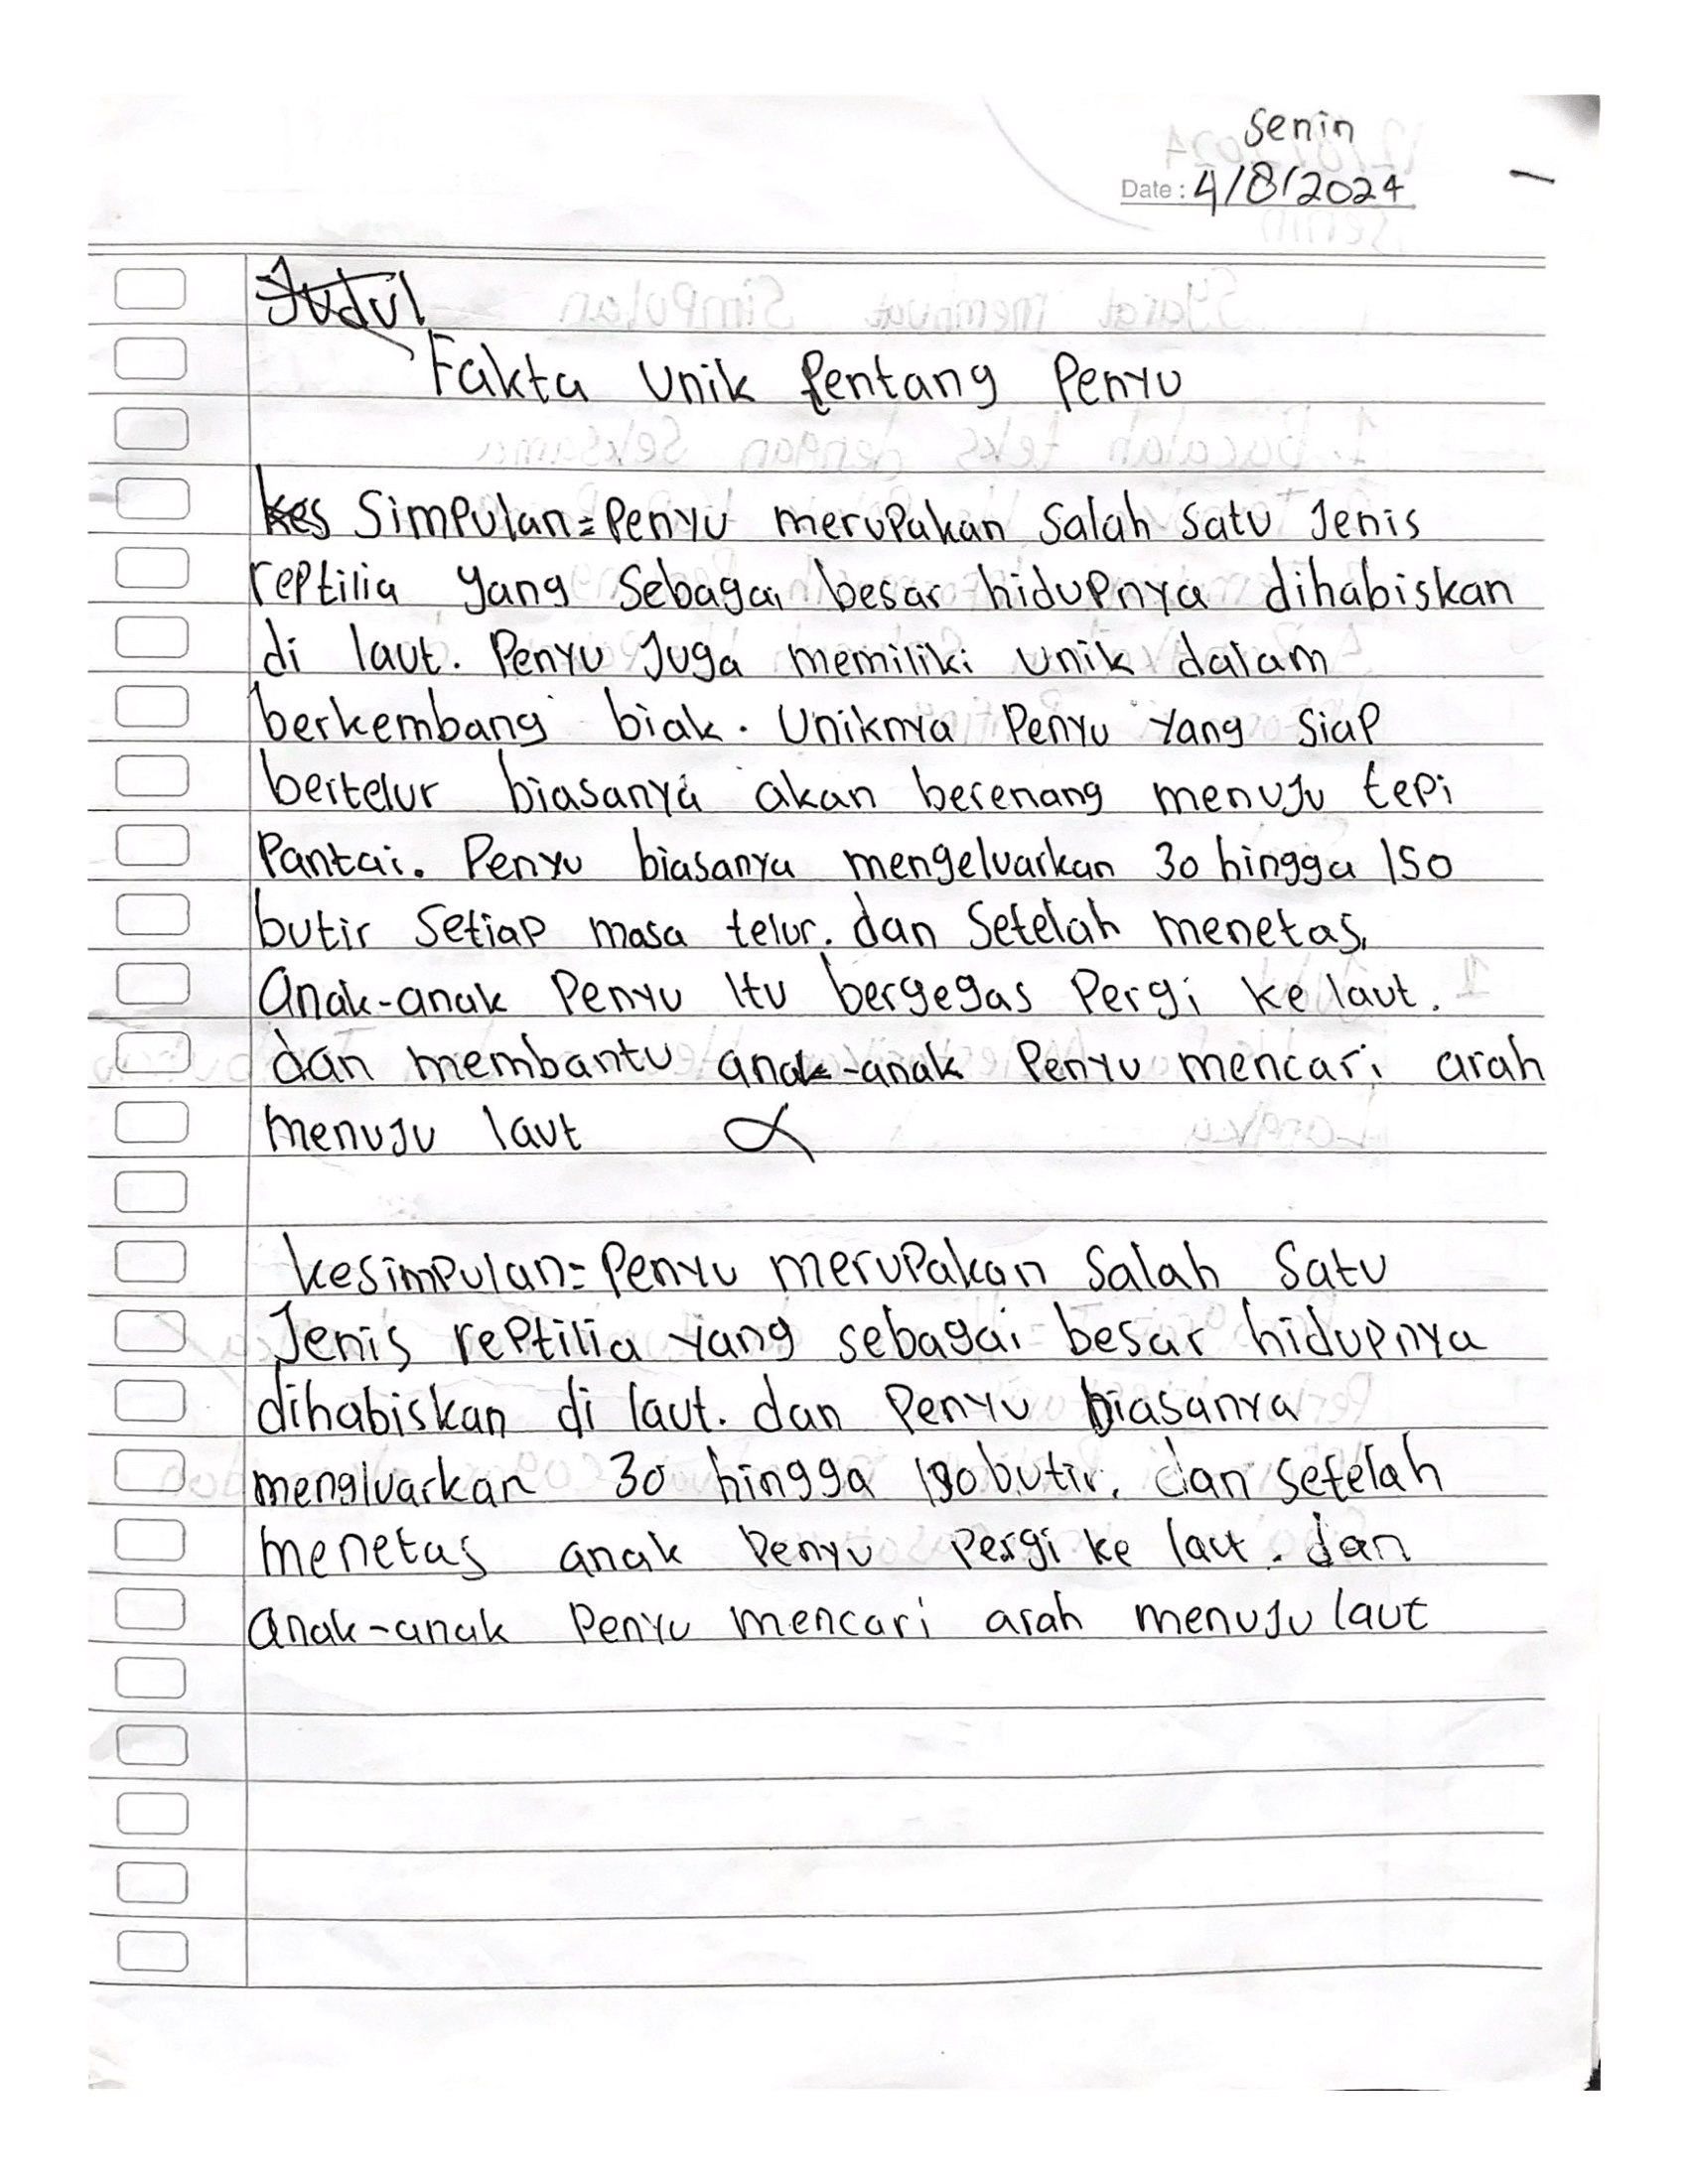 Senin
Date : 4/8/2024
Judul
Fakta Unik tentang Penyu
kes Simpulan = Penyu merupakan Salah Satu Jenis
reptilia yang Sebagai besar hidupnya dihabiskan
di laut. Penyu Juga memiliki unik dalam
berkembang biak. Uniknya Penyu Yang Siap
bertelur biasanya akan berenang menuju tepi
Pantai. Penyu biasanya mengeluarkan 30 hingga 150
butir Setiap masa telur. dan Setelah menetas,
Anak-anak Penyu Itu bergegas Pergi ke laut.
dan membantu anak-anak Penyu mencari arah
menuju laut
kesimpulan = Penyu merupakan Salah Satu
Jenis reptilia yang sebagai besar hidupnya
dihabiskan di laut. dan Penyu biasanya
mengluarkan 30 hingga butir. dan setelah
menetas anak Penyu Pergi ke laut. dan
Anak-anak Penyu mencari arah menuju laut